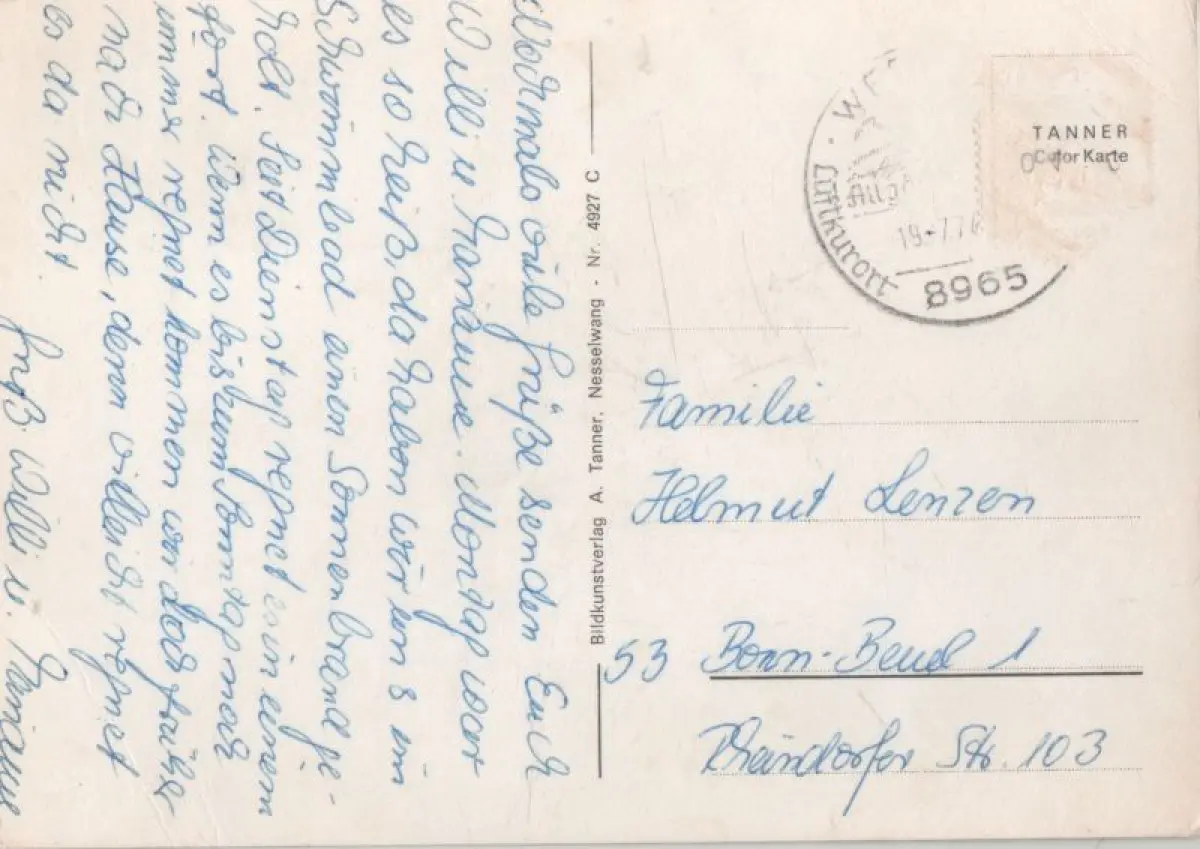 Nochmals viele Grüße senden Euch
Willi u. Marianne. Montag war
es so heiß, da haben wir uns im
Schwimmbad einen Sonnenbrand ge-
holt. Seit Dienstag regnet es in einem
fort. Wenn es bis zum Sonntag noch
immer regnet kommen wir doch früher
nach Hause, denn vielleicht regnet
es da nicht.
Gruß Willi u. Marianne
Bildkunstverlag A. Tanner, Nesselwang - Nr. 4927 C
TANNER
Color Karte
Luftkurort
19.-7.7
8965
Familie
Helmut Lenzen
53 Bonn-Beuel 1
Rheindorfer Str. 103